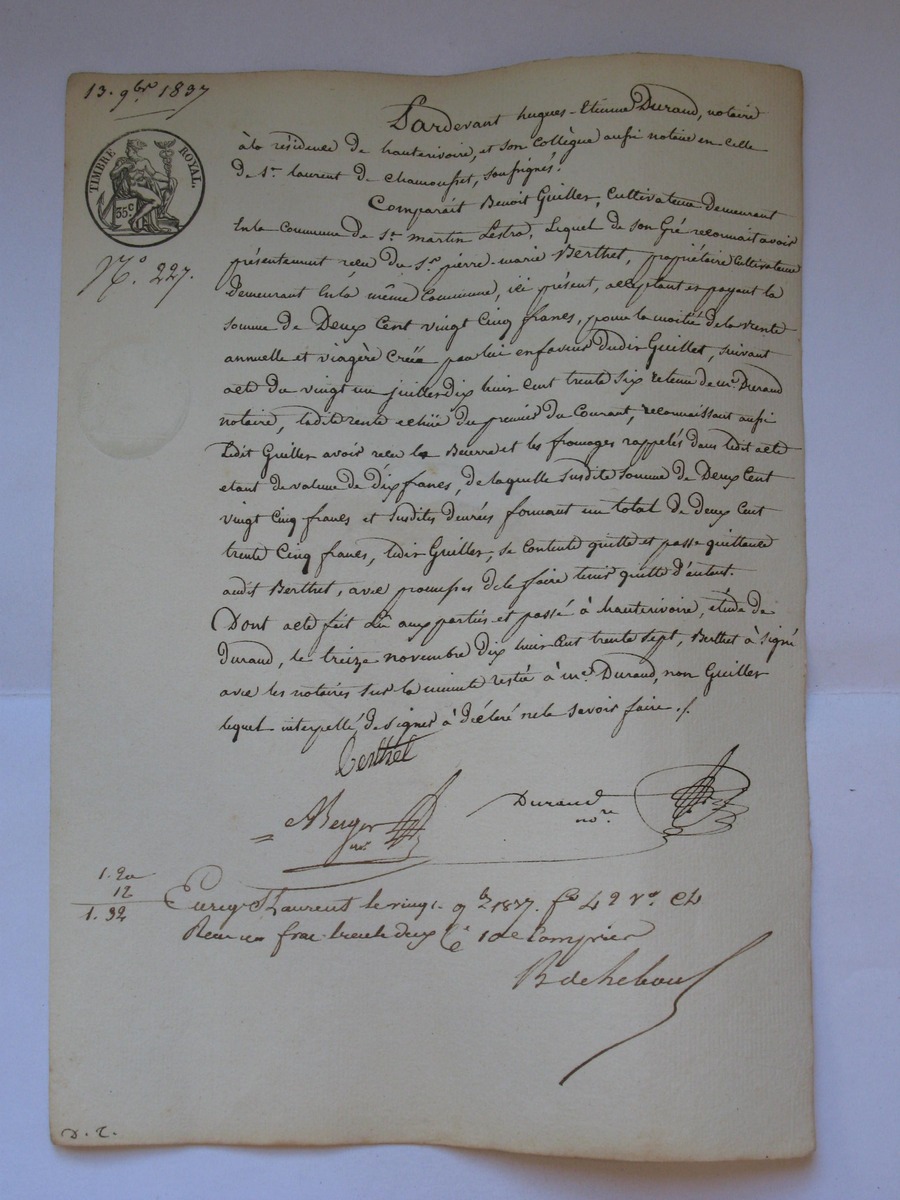 13. 9bre 1837
Pardevant hugues-Etienne Durand, notaire
à la résidence de hauterivoire, et son Collègue aussi notaire en celle
de St. laurent de Chamousset, soussignés.
TIMBRE ROYAL.
35c
Comparait Benoit Guillet, Cultivateur Demeurant
En la Commune de St. martin Lestra, Lequel de son Gré reconnait avoir
N° 227.
présentement reçu du Sr. pierre-marie Berthet, propriétaire Cultivateur
Demeurant En la même Commune, ici présent, acceptant et payant la
somme de Deux Cent vingt Cinq francs, pour la moitié de la rente
annuelle et viagère Créée par lui en faveur Dudit Guillet, suivant
acte du vingt un juillet dix huit Cent trente Six reçu de me. Durand
notaire, ladite rente echue du premier du Courant, reconnaissant aussi
Ledit Guillet avoir reçu le Beurre et les fromages rappelés dans ledit acte
etant de valeur de dix francs, de laquelle susdite somme de Deux Cent
vingt Cinq francs et susdites denrées formant un total de deux Cent
trente Cinq francs, ledit Guillet, se Contente quitte et passe quittance
audit Berthet, avec promesse de le faire tenir quitte d'autant.
Dont acte fait Lu aux parties et passé à hauterivoire, étude de
Durand, le treize novembre Dix huit Cent trente Sept, Berthet à Signé
avec les notaires sur la minute restée à me. Durand, non Guillet
lequel interpellé de signer à déclaré ne le savoir faire ./.
Berthet
Berger
nre
Durand
nore
1. 20
12
1. 32
St Laurent le vingt 9bre 1837. fo 42 Vo C4
Reçu un franc trente deux Ce 10e Compris
D. R.